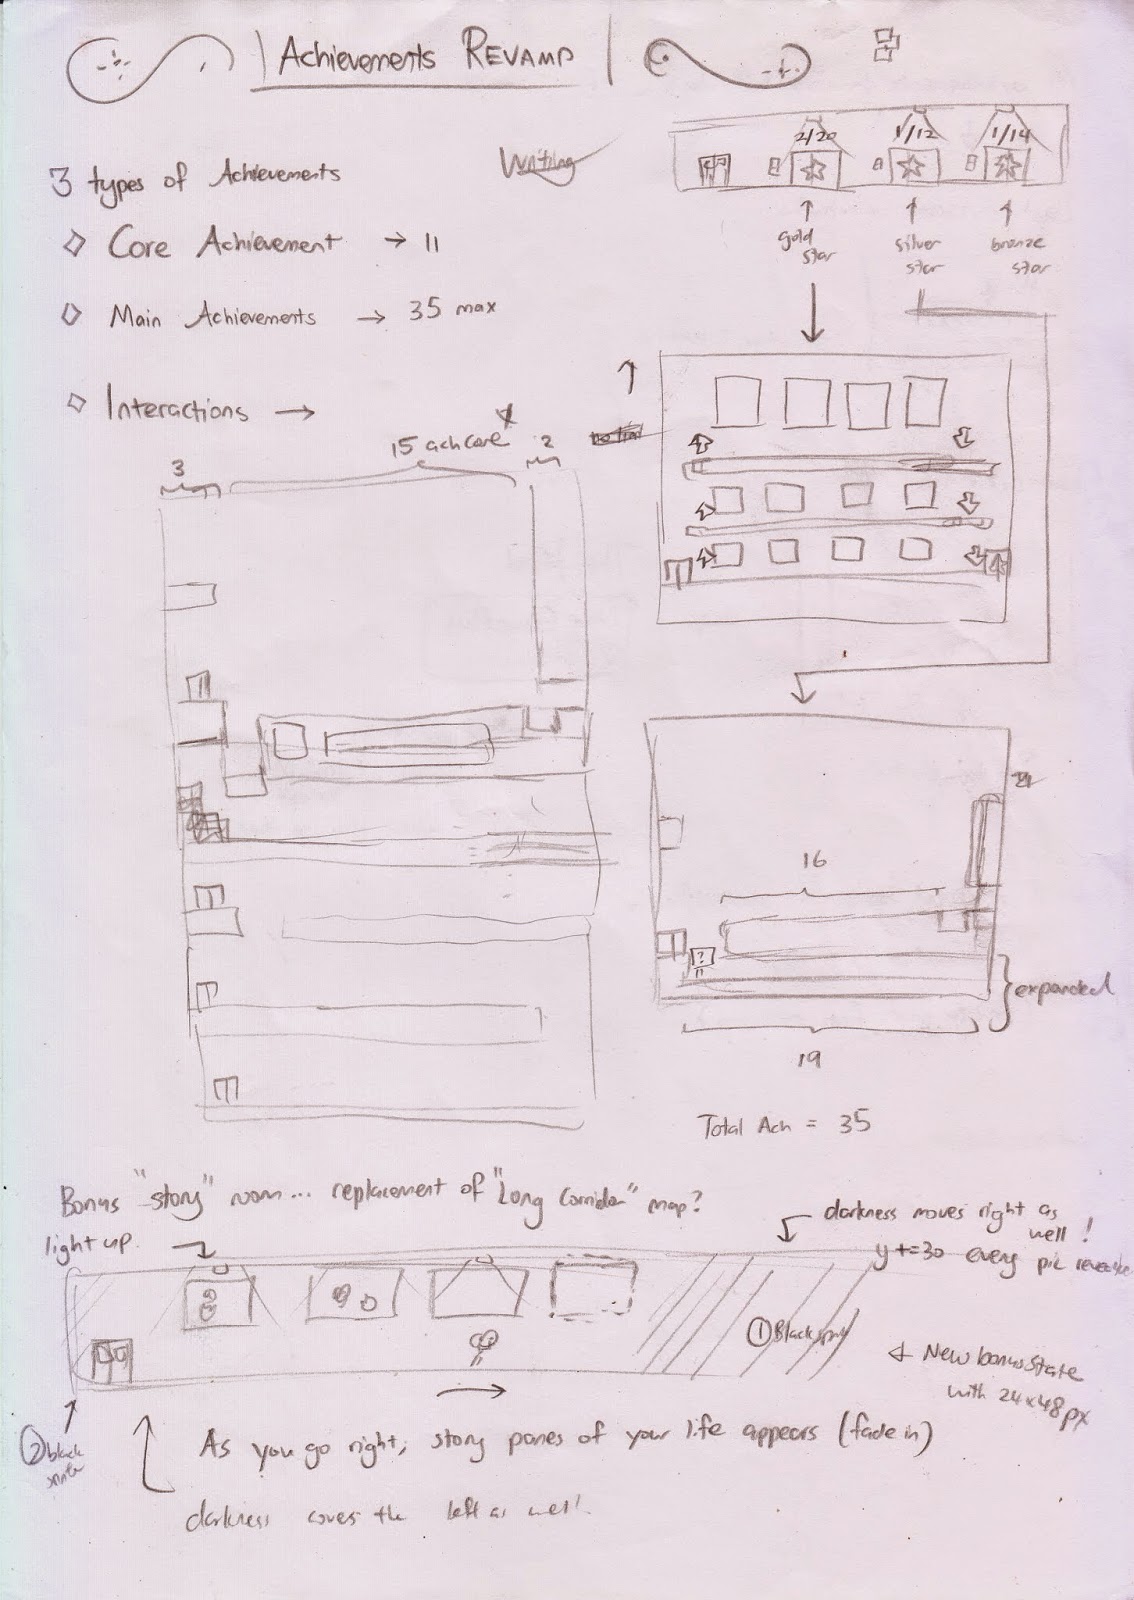 Achievements REVAMP
3 types of Achievements
Writing
Core Achievement → 11
Main Achievements → 35 max
Interactions →
2/20
1/12
1/14
gold star
silver star
bronze star
3
15 achcore
2
16
?
expanded
19
Total Ach = 35
Bonus "story" room... replacement of "Long Corridor" map?
light up
darkness moves right as well!
y+=30 every pic
① Black
New bonus state
with 24x48px
② black
As you go right, story panes of your life appears (fade in)
darkness covers the left as well.